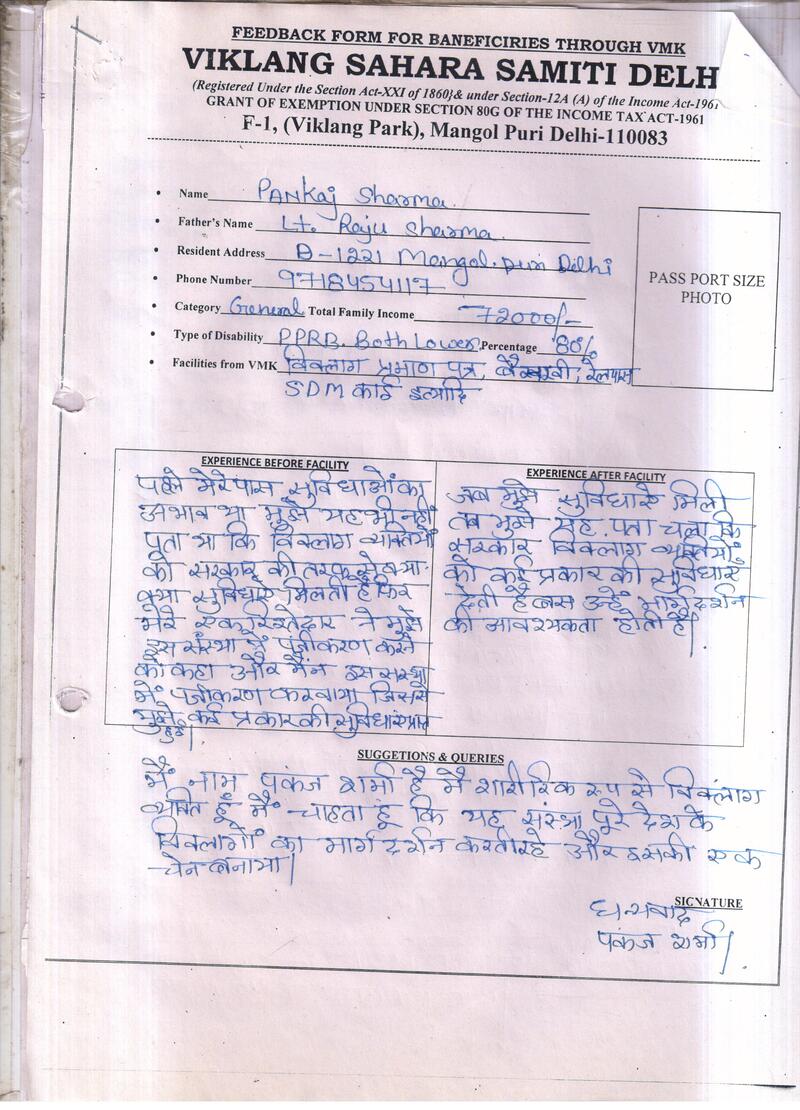 FEEDBACK FORM FOR BANEFICIRIES THROUGH VMK
VIKLANG SAHARA SAMITI DELH
(Registered Under the Section Act-XXI of 1860}& under Section-12A (A) of the Income Act-1961
GRANT OF EXEMPTION UNDER SECTION 80G OF THE INCOME TAX ACT-1961
F-1, (Viklang Park), Mangol Puri Delhi-110083
• Name PANKaj Sharma.
• Father's Name Lt. Raju Sharma
• Resident Address D-1221 Mangol.puri Delhi
• Phone Number 9718454117
• Category General Total Family Income 72000/-
• Type of Disability PPRB. Both Lower Percentage 80%
• Facilities from VMK विक्लाग प्रमाण पत्र, बैसाखी, रेलपास
SDM कार्ड इत्यादि
PASS PORT SIZE
PHOTO
EXPERIENCE BEFORE FACILITY
पहले मेरेपास सुविधाओं का
अभाव था मुझे यह भी नहीं
पता था कि विक्लाग व्यक्तियों
को सरकार की तरफ से क्या-
क्या सुविधाए मिलती है फिर
मेरे एक रिस्तेदार ने मुझे
इस संस्था में पंजीकरण करने
को कहा और मैंन इस संस्था
में पंजीकरण करवाया जिससे
मुझे कई प्रकार की सुविधाए प्राप्त
हुई।
EXPERIENCE AFTER FACILITY
जब मुझे सुविधाऐ मिली
तब मुझे यह पता चला कि
सरकार विक्लाग व्यक्तियों
को कई प्रकार की सुविधाए
देती है बस उन्हें मार्ग दर्शन
की आवश्यकता होती है।
SUGGETIONS & QUERIES
मैं नाम पकंज शर्मा है मै शारीरिक रूप से विक्लांग
व्यक्ति हूँ मैं चाहता हूं कि यह संस्था पूरे देश के
विक्लागों का मार्ग दर्शन करती रहे और इसकी एक
चेन बनाया।
SIGNATURE
धन्यवाद
पकंज शर्मा।